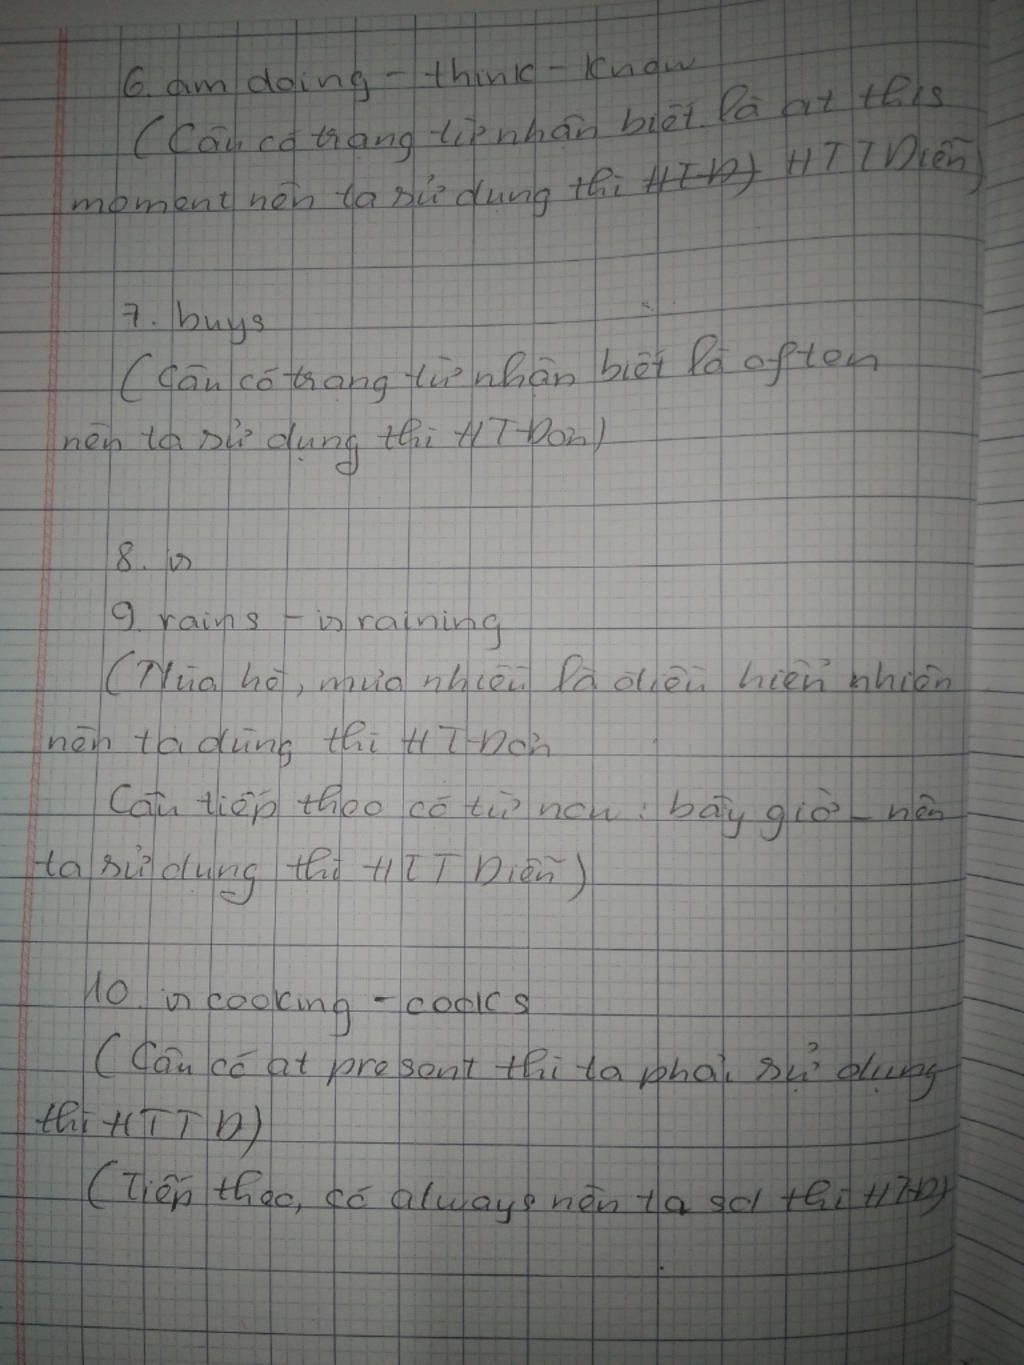 6. am doing - think - know
(Câu có trạng từ nhận biết là at this
moment nên ta sử dụng thì HTD) HTTDiễn)
7. buys
(Câu có trạng từ nhận biết là often
nên ta sử dụng thì HTĐơn)
8. is
9. rains - is raining
(Mùa hè, mưa nhiều là điều hiển nhiên
nên ta dùng thì HTĐơn
Câu tiếp theo có từ now: bây giờ - nên
ta sử dụng thì HTTDiễn)
10. is cooking - cooks
(Câu có at present thì ta phải sử dụng
thì HTTD)
(Tiếp theo, có always nên ta sd thì HTĐ)